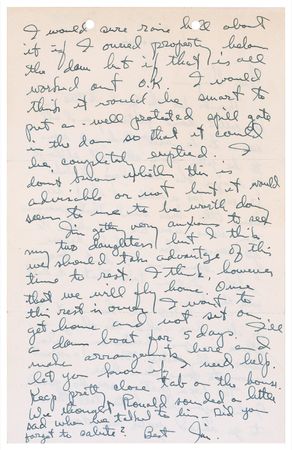 I would sure raise hell about
it if I owned property below
the dam but if that is all
worked out O.K. I would
think it would be smart to
put an well protected spill gate
in the dam so that it could
be completely emptied. I
don't know whether this is
advisable or not but it would
seem to me to be worth doing
I'm getting very anxious to see
my two daughters but I think
we should take advantage of this
time to rest. I think, however
that we will fly home. Once
this rest is over I want to
get home and not set on
a damn boat for 5 days. I'll
make arrangements here and
let you know if I need help.
Keep pretty close tab on the house.
We thought Ronald sounded a little
sad when we talked to him — Did you
forget to salute? Best Jim.